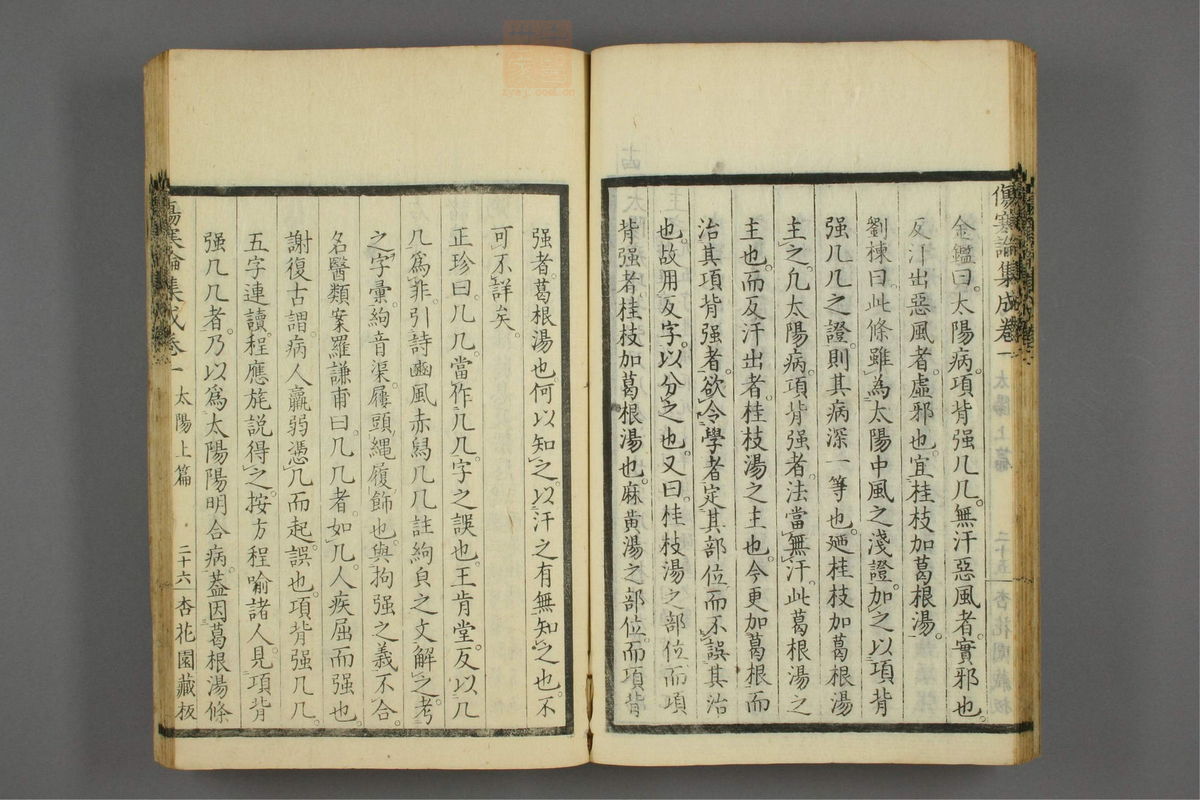 傷寒論集成卷一
金鑑曰。太陽病。項背强几几。無汗惡風者。實邪也。
反汗出惡風者。虛邪也。宜桂枝加葛根湯。
劉棟曰。此條雖爲太陽中風之淺證。加之以項背
强几几之證。則其病深一等也。廼桂枝加葛根湯
主之。凡太陽病。項背强者。法當無汗。此葛根湯之
主也。而反汗出者。桂枝湯之主也。今更加葛根而
治其項背强者。欲令學者定其部位。而不誤其治
也。故用反字。以分之也。又曰。桂枝湯之部位。而項
背强者。桂枝加葛根湯也。麻黄湯之部位。而項背
强者。葛根湯也。何以知之。以汗之有無知之也。不
可不詳矣。
正珍曰。几几。當作几几。字之誤也。王肯堂。反以几
几爲非。引詩豳風赤舄几几註絢皃之文解之。考
之字彙。絇音渠。屨頭繩。履飾也。與拘强之義不合。
名醫類案羅謙甫曰。几几者。如几。人疾屈而强也。
謝復古謂。病人羸弱。憑几而起。誤也。項背强几几。
五字連讀。程應旄説得之。按方程喻諸人。見項背
强几几者。乃以爲太陽陽明合病。蓋因葛根湯條
傷寒論集成卷一 太陽上篇 二十六 杏花園藏板